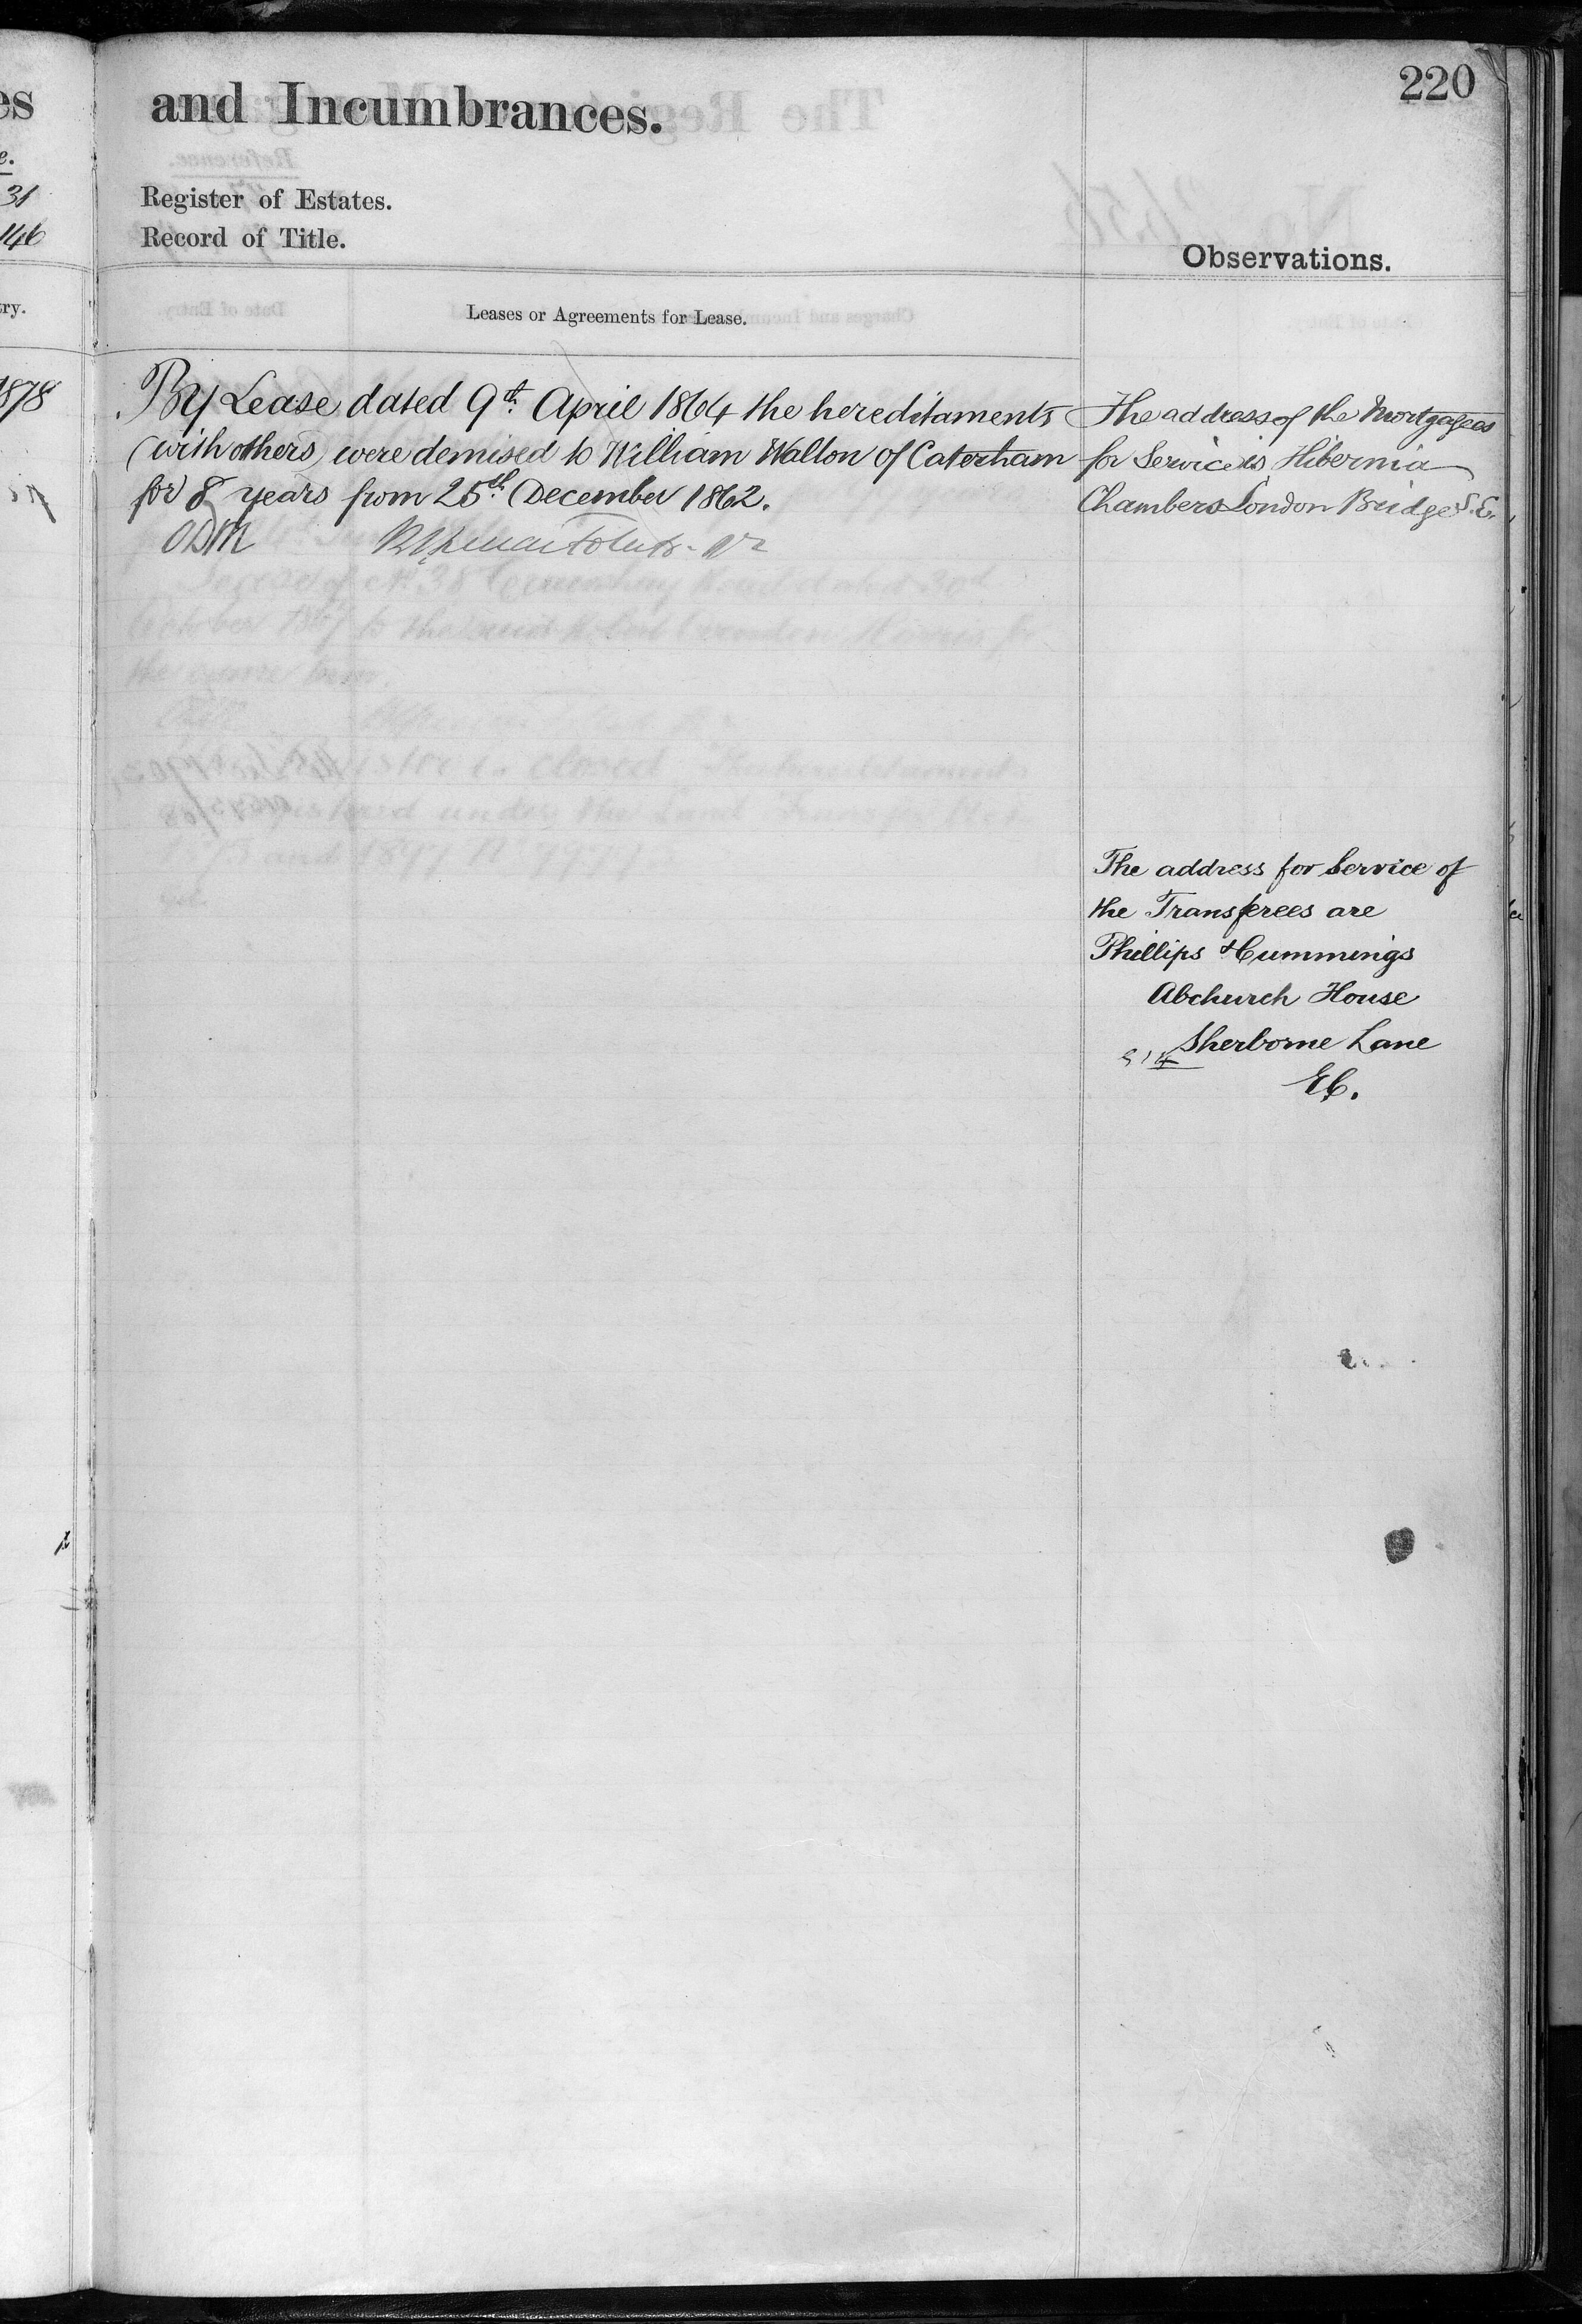 220
and Incumbrances.
Register of Estates.
Record of Title.
Observations.
Leases or Agreements for Lease.
By Lease dated 9th April 1864 the hereditaments
(with others) were demised to William Walton of Caterham
for 8 years from 25th December 1862.
ODM
The address of the Mortgagees
for Service is Hibernia
Chambers London Bridge S.E.
The address for Service of
the Transferees are
Phillips & Cummings
Abchurch House
Sherborne Lane
EC.
es
e.
31
146
try.
1878